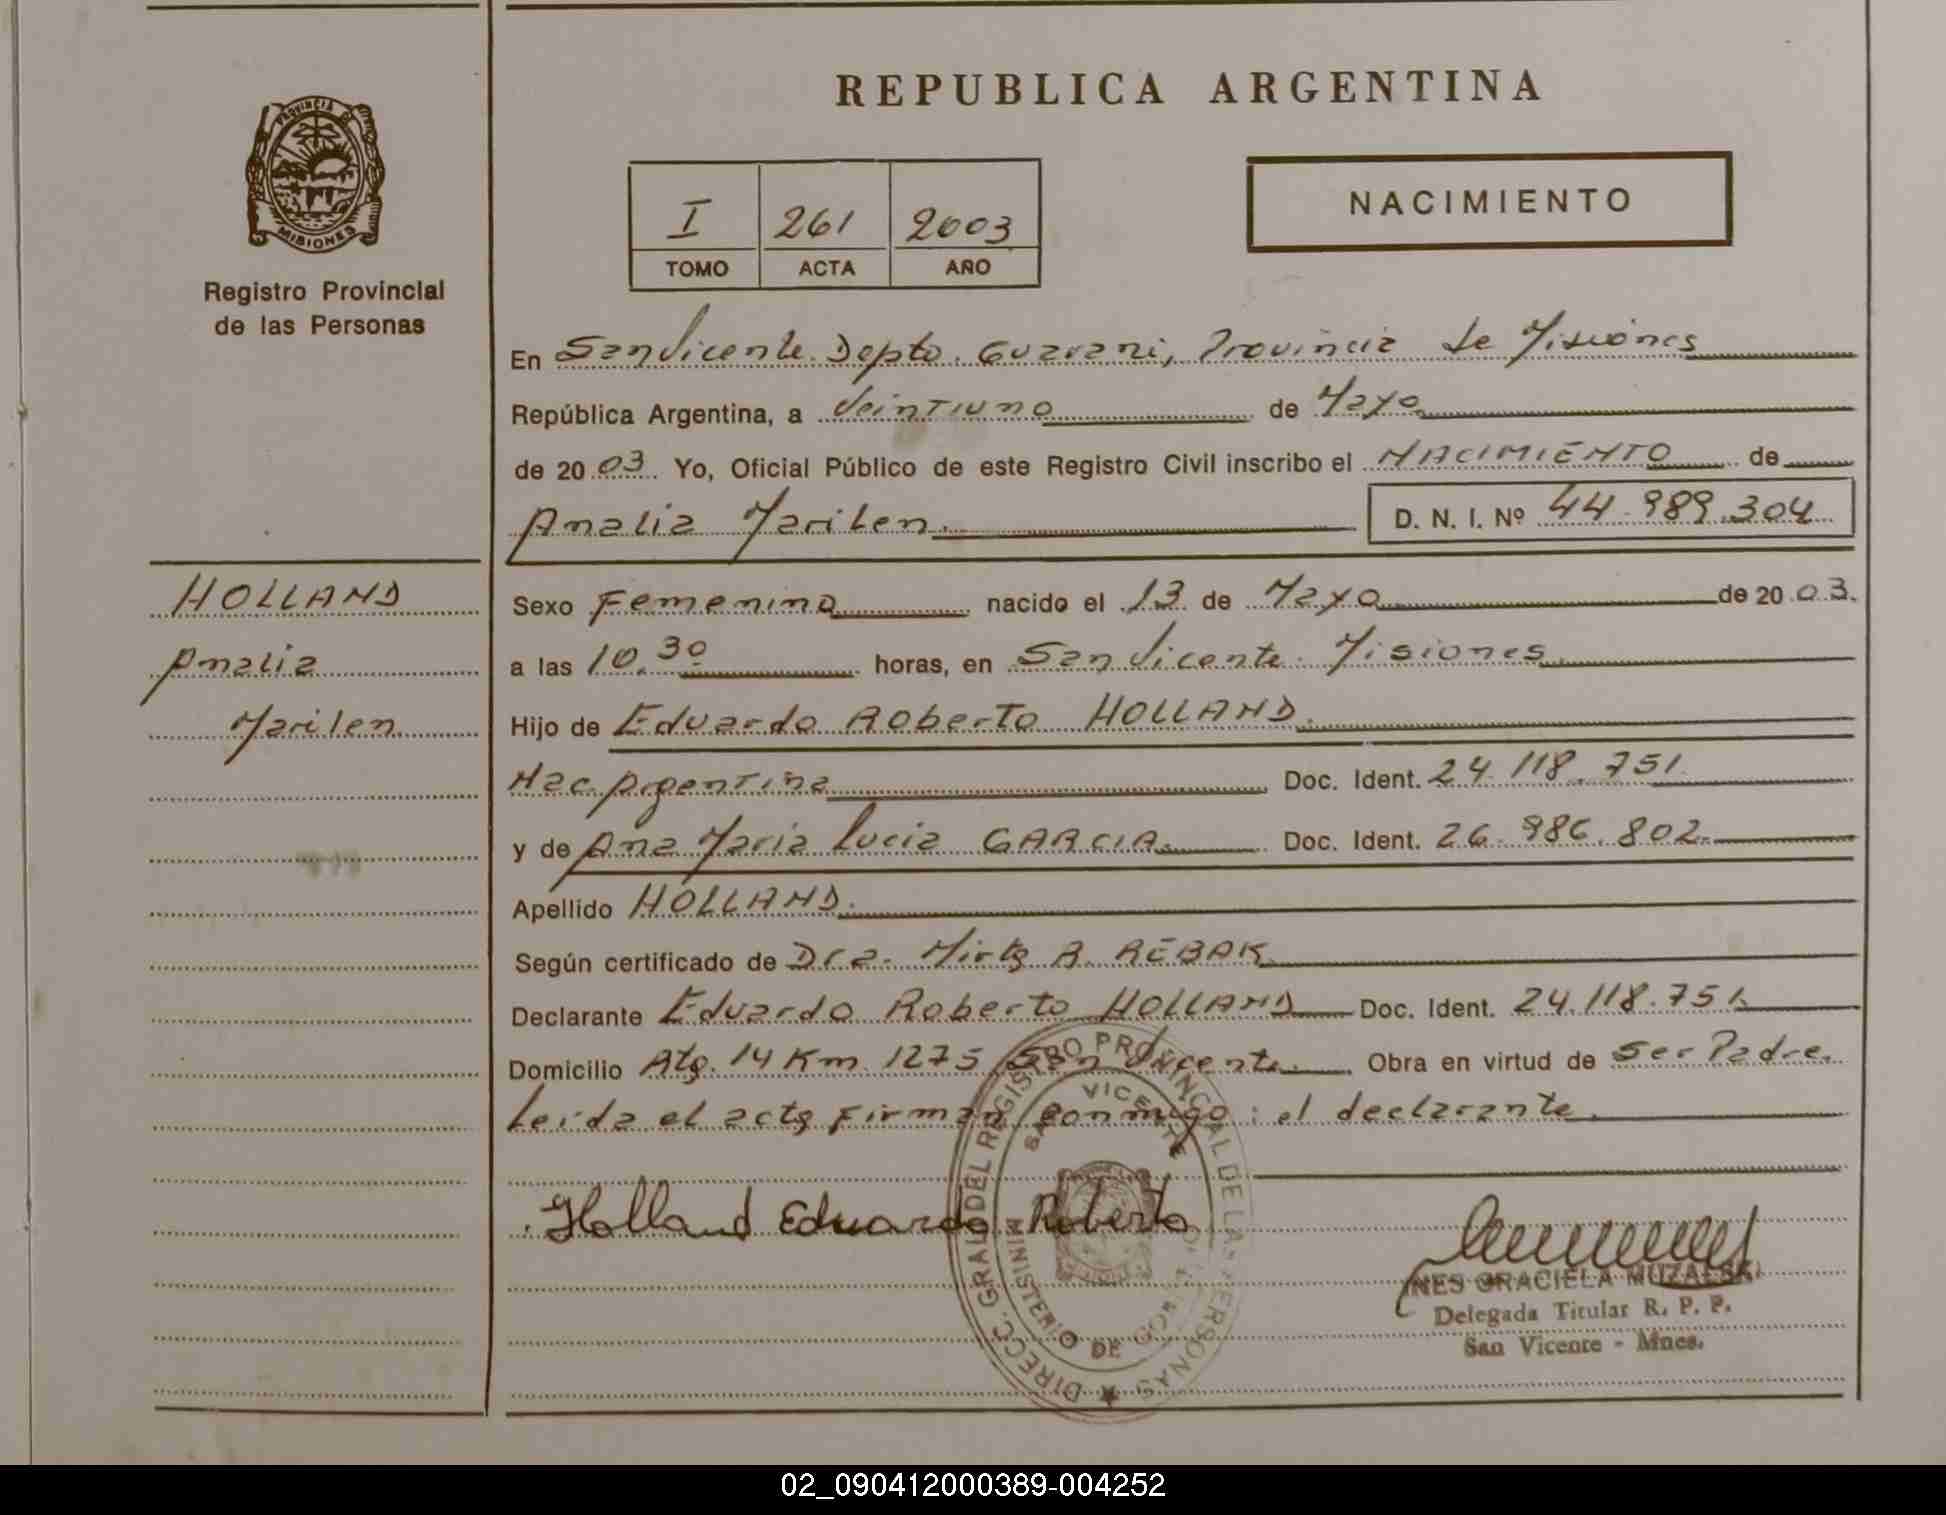 REPUBLICA ARGENTINA
PROVINCIA DE
MISIONES
Registro Provincial
de las Personas
I 261 2003
TOMO ACTA AÑO
NACIMIENTO
En San Vicente. Depto. Guarani, Provincia de Misiones
República Argentina, a Veintiuno de Mayo
de 20 03. Yo, Oficial Público de este Registro Civil inscribo el NACIMIENTO de
Analia Marilen. D. N. I. Nº 44.989.304
HOLLAND
Analia
Marilen
Sexo Femenino nacido el 13 de Mayo de 20 03.
a las 10.30 horas, en San Vicente. Misiones
Hijo de Eduardo Roberto HOLLAND.
Nac. Argentina Doc. Ident. 24.118.751.
y de Ana Maria Lucia GARCIA. Doc. Ident. 26.986.802.
Apellido HOLLAND.
Según certificado de Dra. Mirta A. REBAK
Declarante Eduardo Roberto HOLLAND Doc. Ident. 24.118.751.
Domicilio Atg. 14 Km. 1275 San Vicente. Obra en virtud de ser Padre.
Leida el acta firman conmigo: el declarante.
Holland Eduardo Roberto
DIRECC. GRAL. DEL REGISTRO PROVINCIAL DE LAS PERSONAS
SAN VICENTE
MINISTERIO DE GOBIERNO
INES GRACIELA MUZALSKI
Delegada Titular R. P. P.
San Vicente - Mnes.
02_090412000389-004252